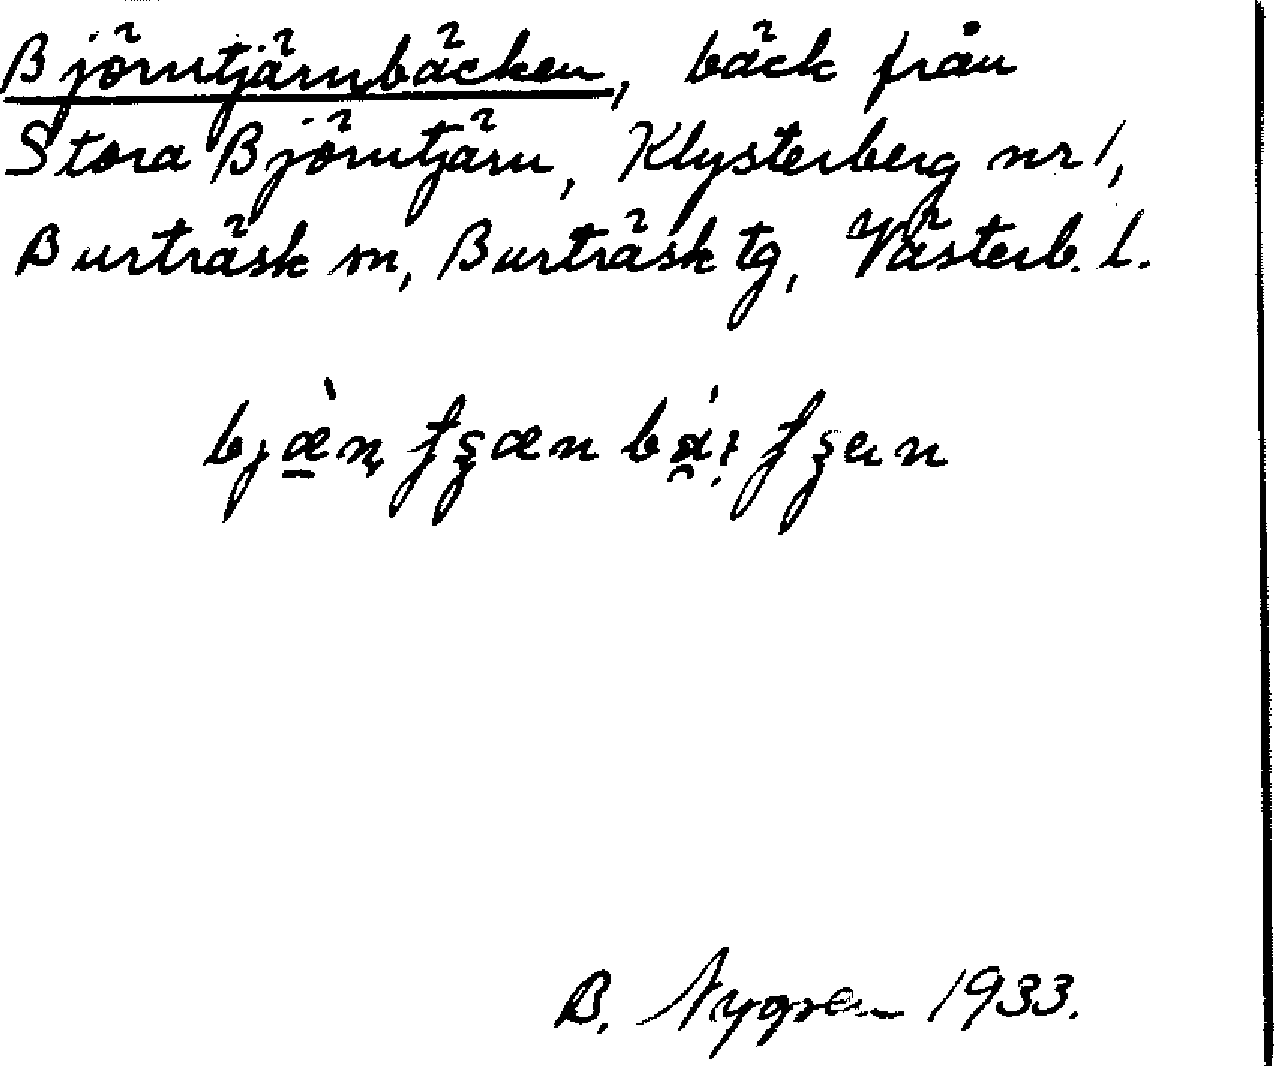 Björntjärnbäcken, bäck från
Stora Björntjärn, Klysterberg nr 1,
Burträsk sn, Burträsk tg, Västerb. l.
B. Nygren 1933.